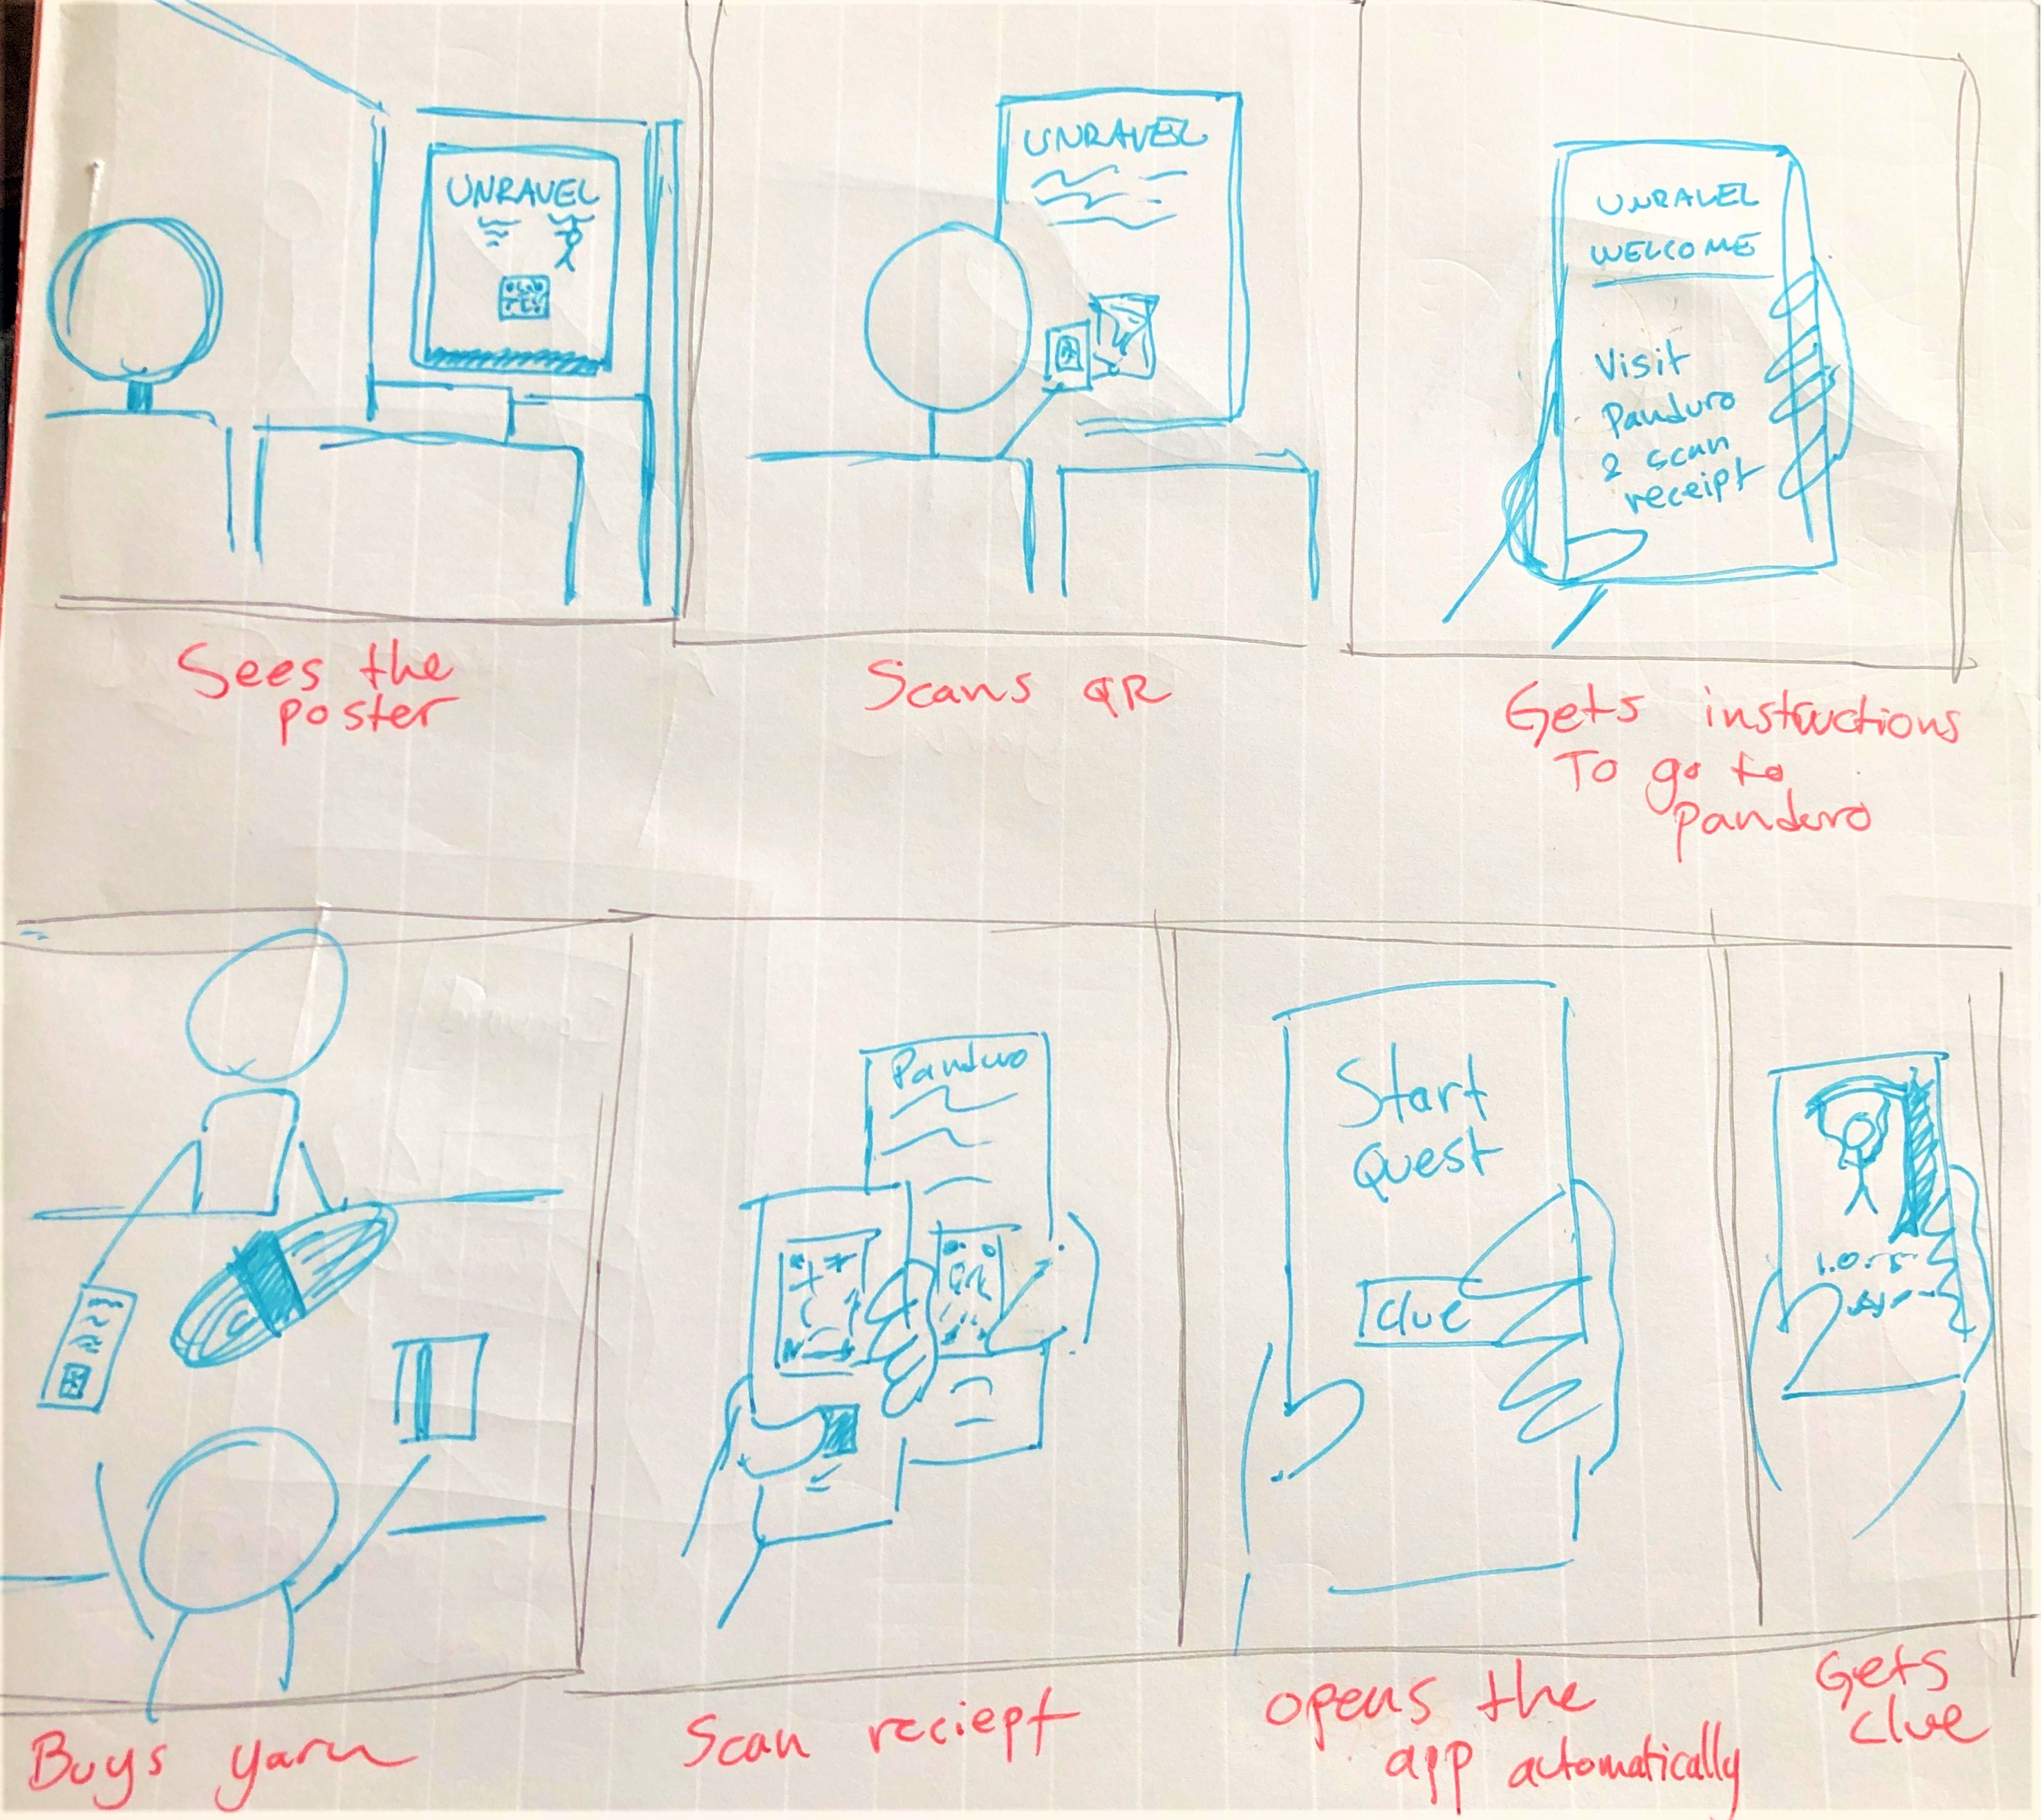 UNRAVEL
Sees the
poster
UNRAVEL
Scans QR
UNRAVEL
WELCOME
Visit
Panduro
& scan
receipt
Gets instructions
To go to
panduro
Buys yarn
Panduro
QR
Scan reciept
Start
Quest
Clue
opens the
app automatically
Gets
clue